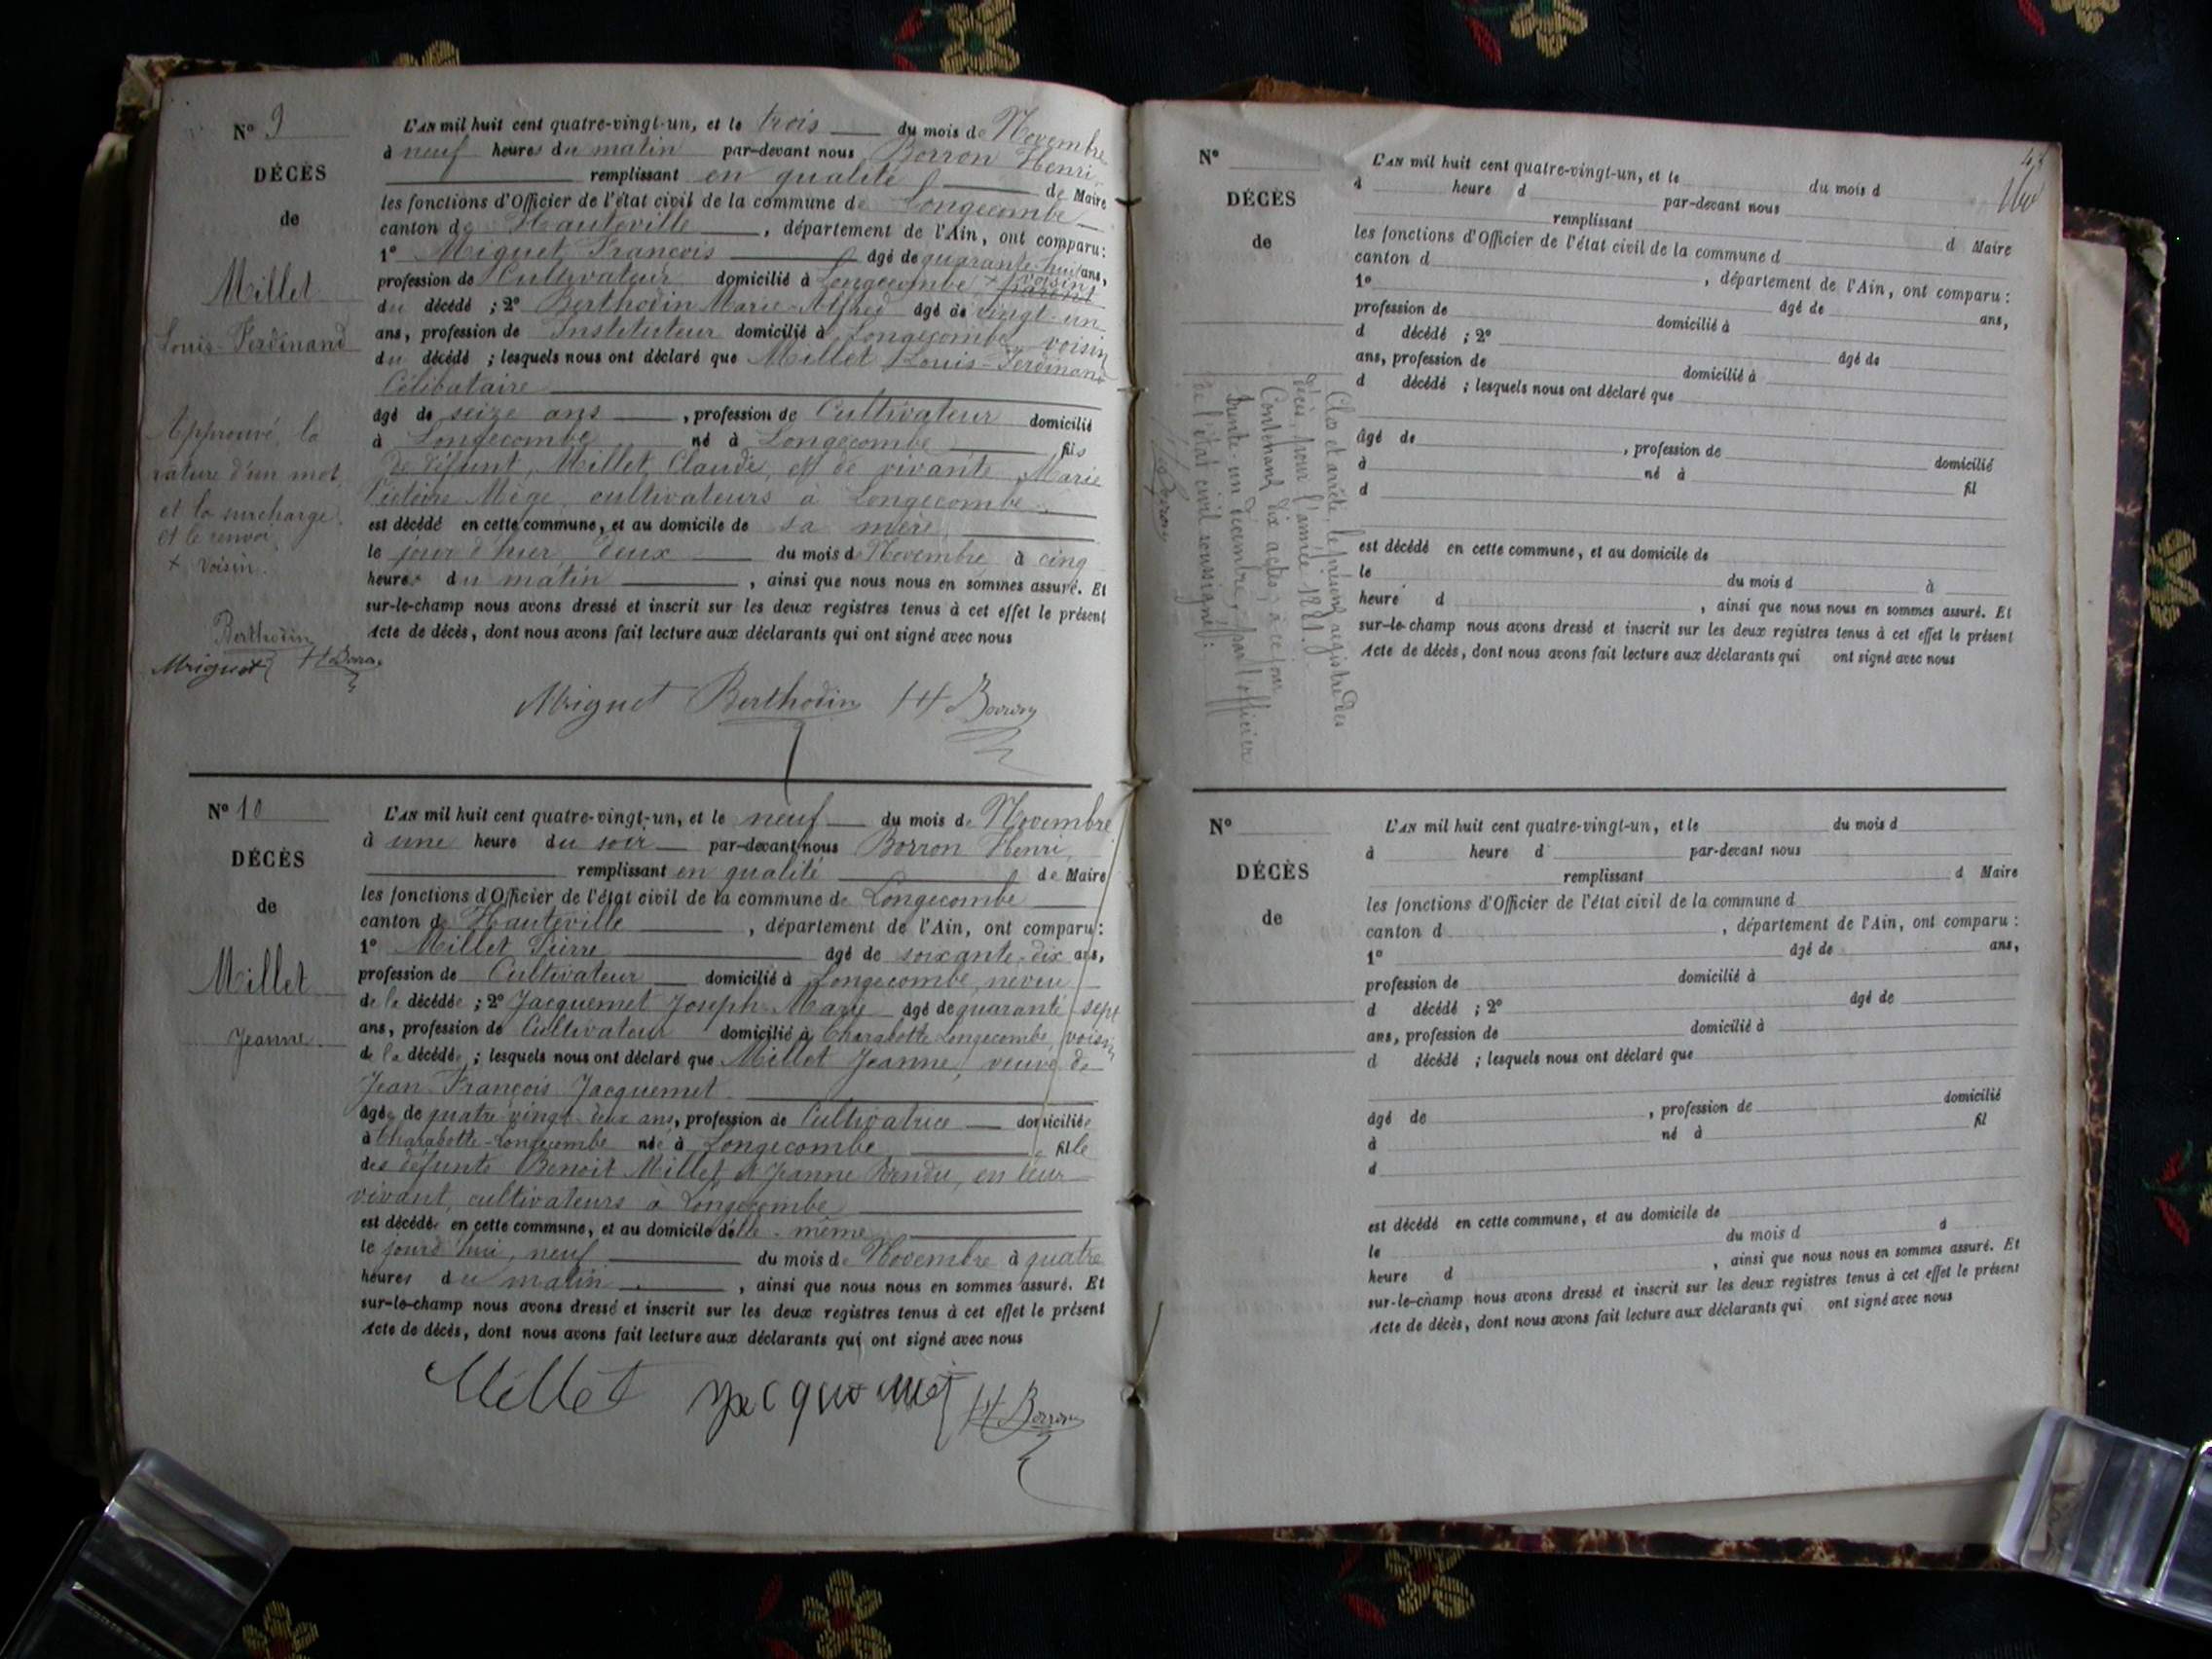 N° 9
DÉCÈS
de
Millet
Louis-Ferdinand
Approuvé, la
rature d'un mot,
et la surcharge.
et le renvoi
+ voisin.
Berthodin
Miguet H Borron
L'AN mil huit cent quatre-vingt-un, et le trois du mois de Novembre
à neuf heures du matin par-devant nous Borron Henri,
remplissant en qualité de Maire
les fonctions d'Officier de l'état civil de la commune de Longecombe
canton de Hauteville, département de l'Ain, ont comparu:
1° Miguet François âgé de quarante-huit ans,
profession de Cultivateur domicilié à Longecombe + voisin
du décédé ; 2° Berthodin Marie-Alfred âgé de vingt-un
ans, profession de Instituteur domicilié à Longecombe, voisin
du décédé ; lesquels nous ont déclaré que Millet Louis-Ferdinand
Célibataire
âgé de seize ans, profession de Cultivateur domicilié
à Longecombe né à Longecombe fils
de défunt, Millet, Claude, et de vivante Marie
Victoire Mége, cultivateurs à Longecombe.
est décédé en cette commune, et au domicile de sa mère,
le jour d'hier, deux du mois de Novembre, à cinq
heures du matin, ainsi que nous nous en sommes assuré. Et
sur-le-champ nous avons dressé et inscrit sur les deux registres tenus à cet effet le présent
Acte de décès, dont nous avons fait lecture aux déclarants qui ont signé avec nous
Miguet Berthodin H Borron
N° 10
DÉCÈS
de
Millet
Jeanne.
L'AN mil huit cent quatre-vingt-un, et le neuf du mois de Novembre
à une heure du soir par-devant nous Borron Henri,
remplissant en qualité de Maire
les fonctions d'Officier de l'état civil de la commune de Longecombe
canton de Hauteville, département de l'Ain, ont comparu:
1° Millet Pierre âgé de soixante-dix ans,
profession de Cultivateur domicilié à Longecombe, neveu
de la décédée ; 2° Jacquemet Joseph-Marie âgé de quarante-sept
ans, profession de Cultivateur domicilié à Charabotte Longecombe, voisin
de la décédée ; lesquels nous ont déclaré que Millet Jeanne, veuve de
Jean-François Jacquemet
âgée de quatre-vingt-deux ans, profession de Cultivatrice domiciliée
à Charabotte-Longecombe née à Longecombe fille
des défunts Benoit Millet et Jeanne en leur
vivant, cultivateurs à Longecombe
est décédée en cette commune, et au domicile d'elle-même
le jourd'hui, neuf du mois de Novembre à quatre
heures du matin, ainsi que nous nous en sommes assuré. Et
sur-le-champ nous avons dressé et inscrit sur les deux registres tenus à cet effet le présent
Acte de décès, dont nous avons fait lecture aux déclarants qui ont signé avec nous
Millet Jacquemet H Borron
Clos et arrêté, le présent registre des
décès, pour l'année 1881.
Contenant dix actes, à ce jour
trente-un décembre, par l'officier
de l'état civil soussigné:
H Borron
N°
DÉCÈS
de
L'AN mil huit cent quatre-vingt-un, et le du mois d
à heure d par-devant nous
remplissant d Maire
les fonctions d'Officier de l'état civil de la commune d
canton d , département de l'Ain, ont comparu :
1° âgé de ans,
profession de domicilié à
d décédé ; 2° âgé de
ans, profession de domicilié à
d décédé ; lesquels nous ont déclaré que
âgé de , profession de domicilié
à né à fil
d
est décédé en cette commune, et au domicile de
le du mois d à
heure d , ainsi que nous nous en sommes assuré. Et
sur-le-champ nous avons dressé et inscrit sur les deux registres tenus à cet effet le présent
Acte de décès, dont nous avons fait lecture aux déclarants qui ont signé avec nous
N°
DÉCÈS
de
L'AN mil huit cent quatre-vingt-un, et le du mois d
à heure d par-devant nous
remplissant d Maire
les fonctions d'Officier de l'état civil de la commune d
canton d , département de l'Ain, ont comparu :
1° âgé de ans,
profession de domicilié à
d décédé ; 2° âgé de
ans, profession de domicilié à
d décédé ; lesquels nous ont déclaré que
âgé de , profession de domicilié
à né à fil
d
est décédé en cette commune, et au domicile de
le du mois d d
heure d , ainsi que nous nous en sommes assuré. Et
sur-le-champ nous avons dressé et inscrit sur les deux registres tenus à cet effet le présent
Acte de décès, dont nous avons fait lecture aux déclarants qui ont signé avec nous